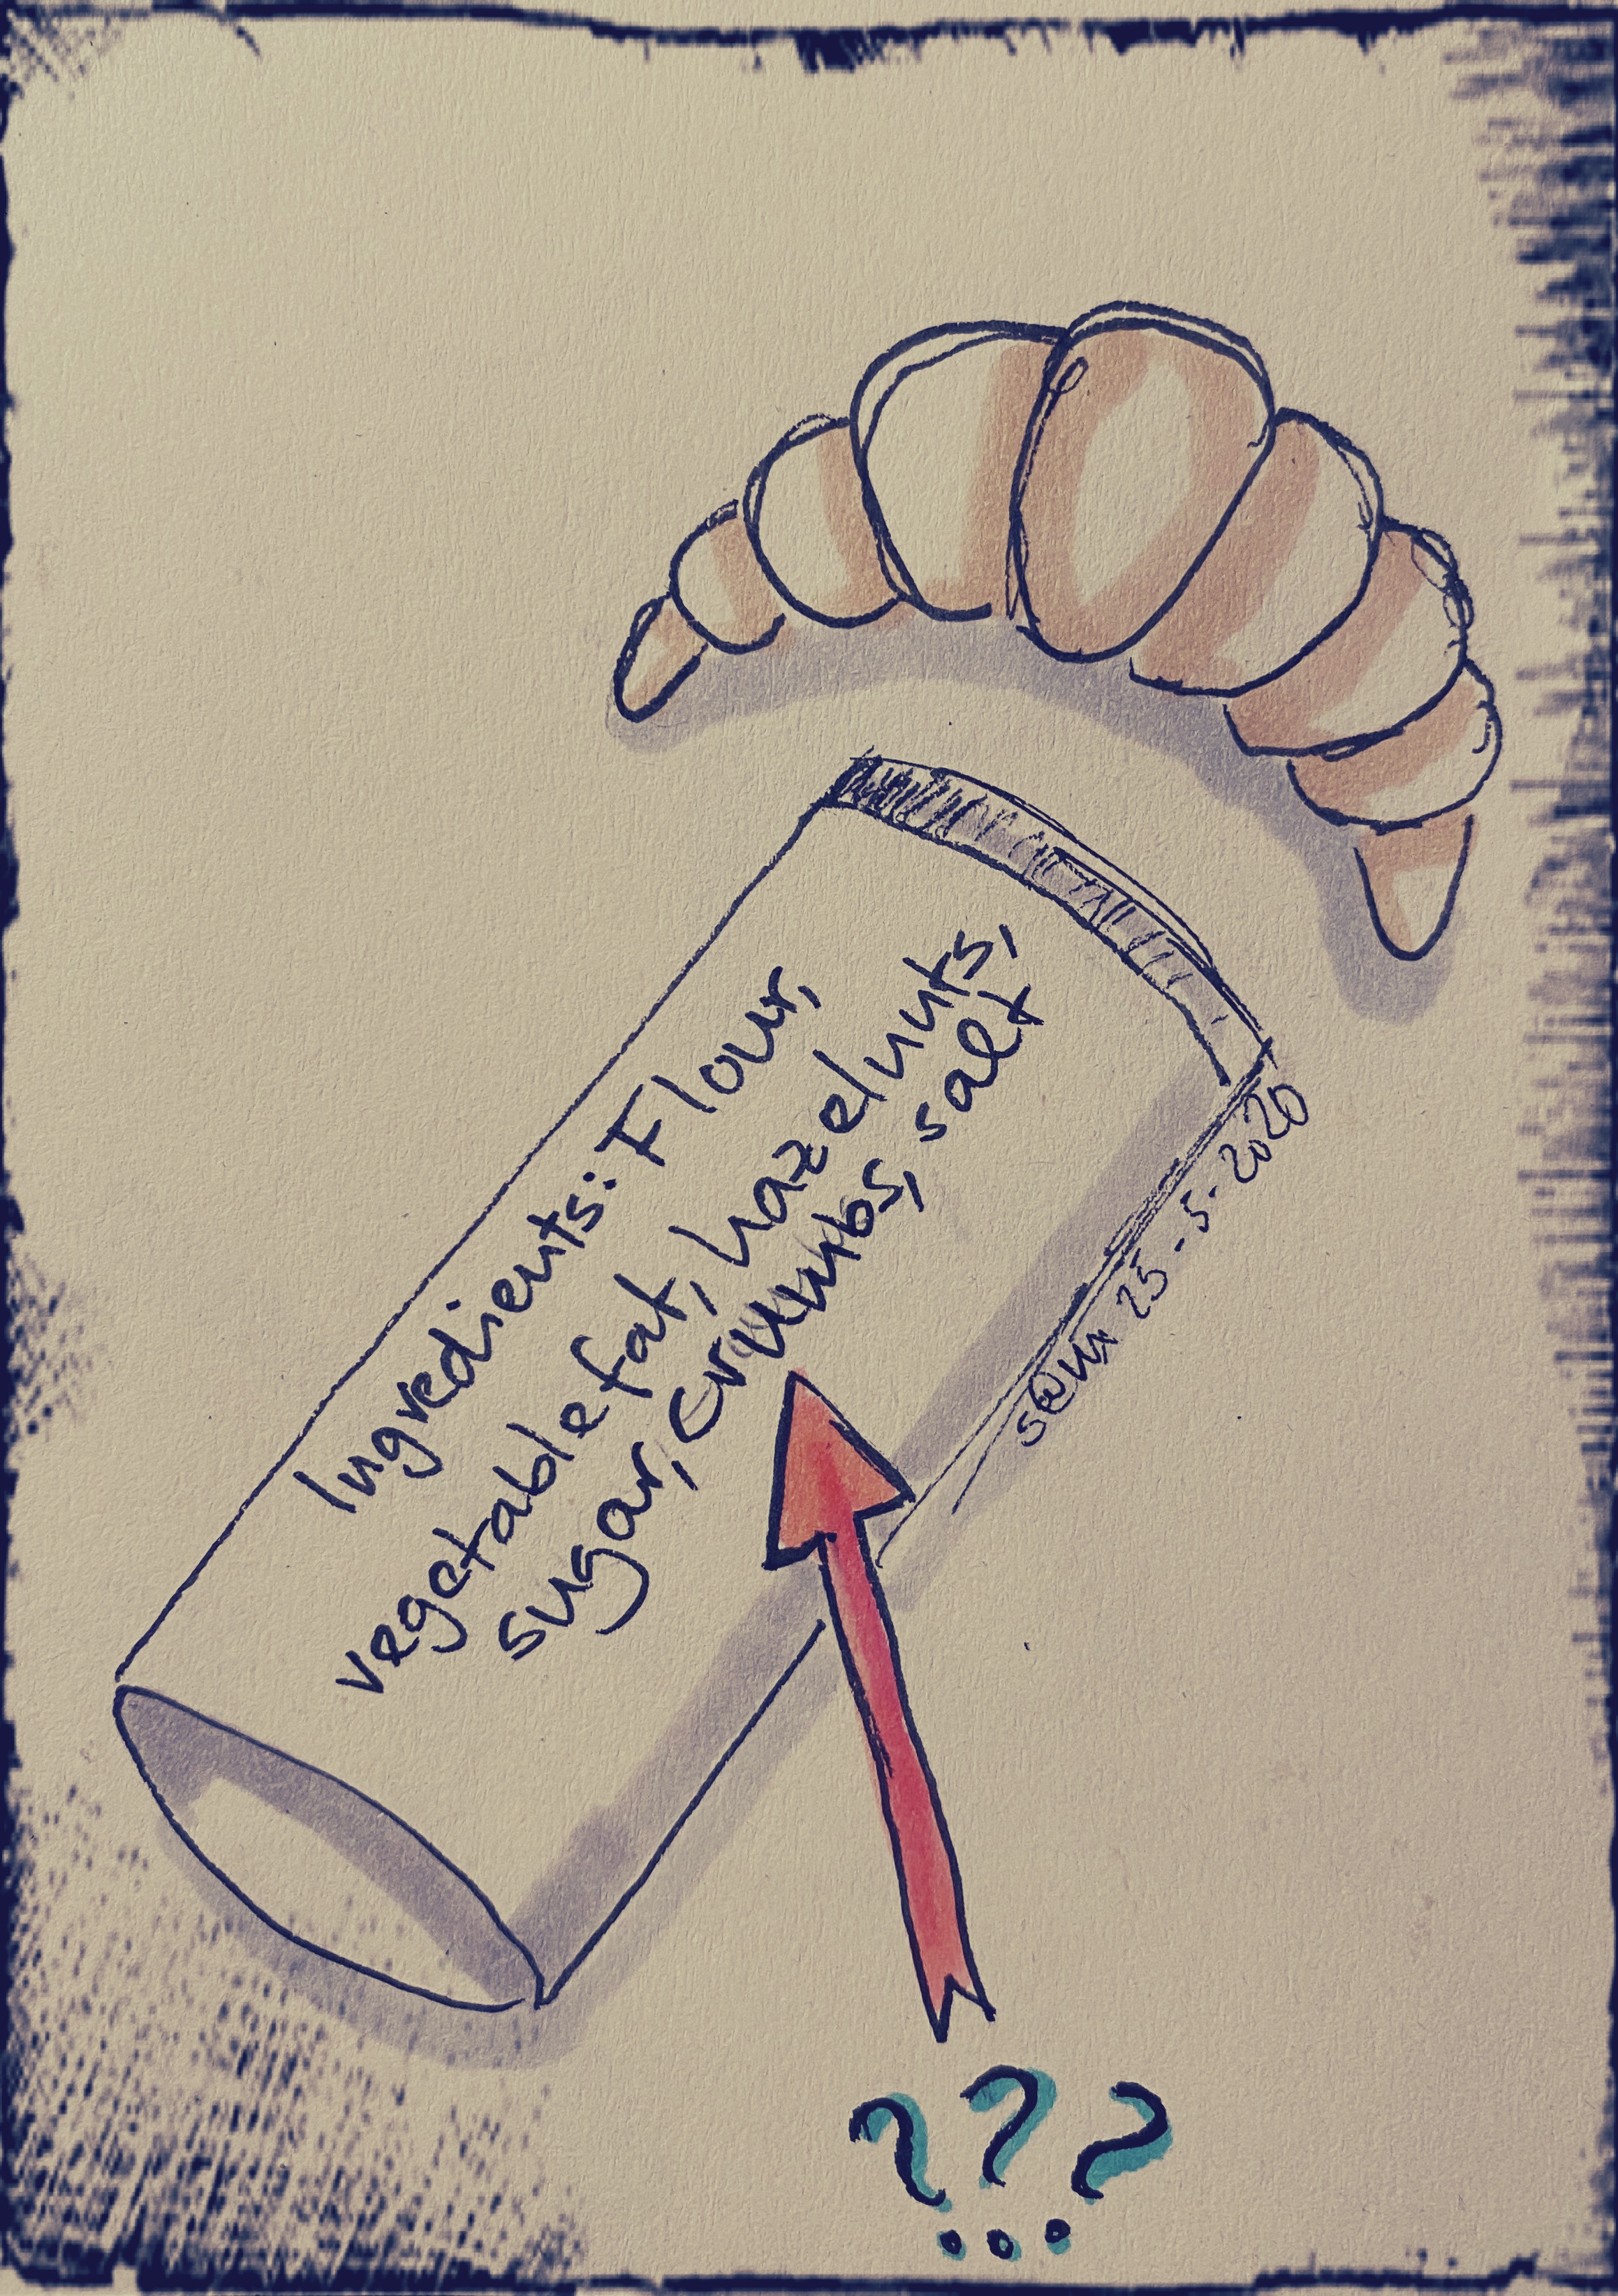 Ingredients: Flour,
vegetable fat, hazelnuts,
sugar, crumbs, salt
s@m 25-5-2020
???